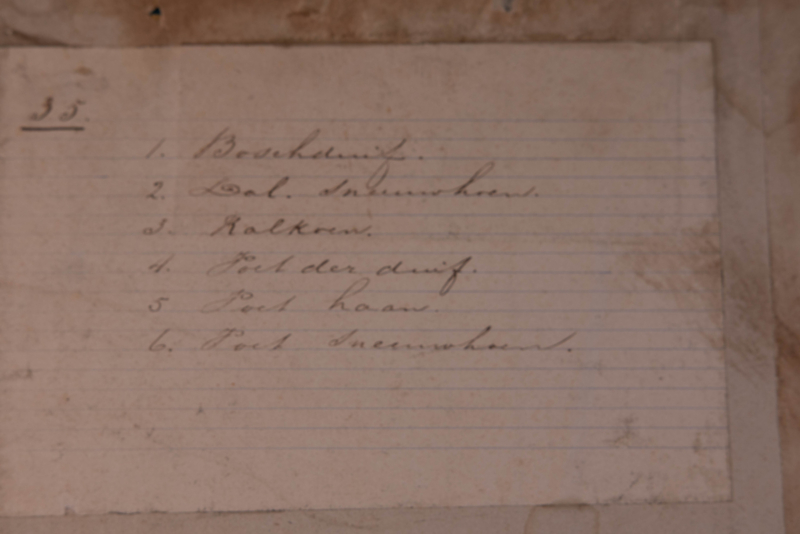 35.
1. Boschduif.
2. Dal. Sneeuwhoen.
3. Kalkoen.
4. Poot der duif.
5 Poot haan.
6. Poot Sneeuwhoen.